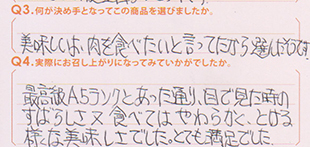 Q3.何が決め手となってこの商品を選びましたか。
美味しいお肉を食べたいと言ってたから選んだそうです
Q4.実際にお召し上がりになってみていかがでしたか。
最高級A5ランクとあった通り、目で見た時の
すばらしさ又食べてはやわらかく、とける
様な美味しさでした。とても満足でした。